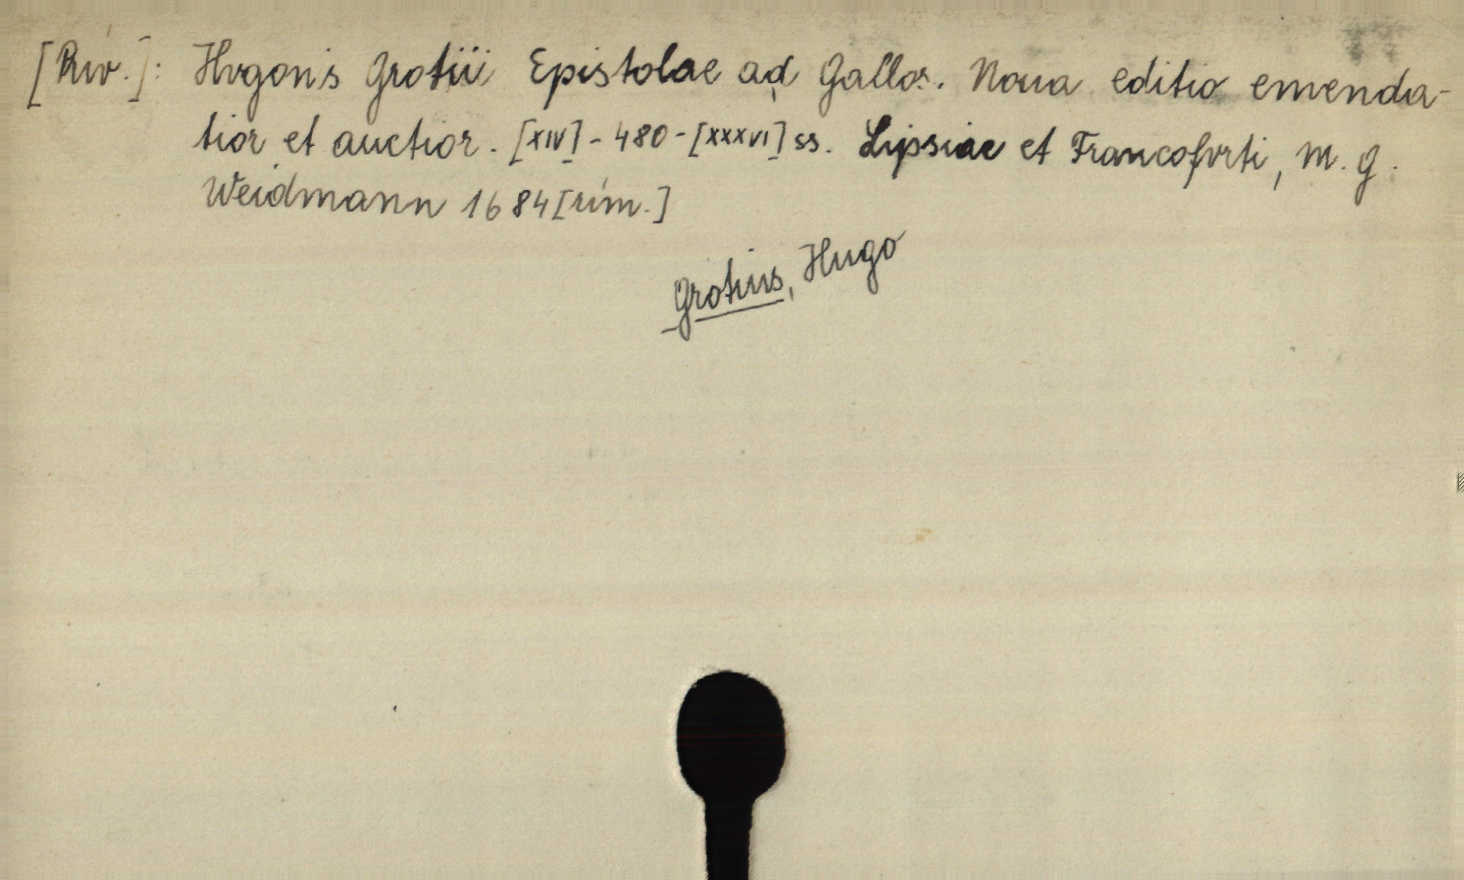 [Rov.]: Hvgonis Grotii Epistolae ad Gallos. Noua editio emenda-
tior et auctior. [XIV] - 480 - [XXXVI] ss. Lipsiae et Francofvrti, M. G.
Weidmann 1684 [rím.]
Grotius, Hugo